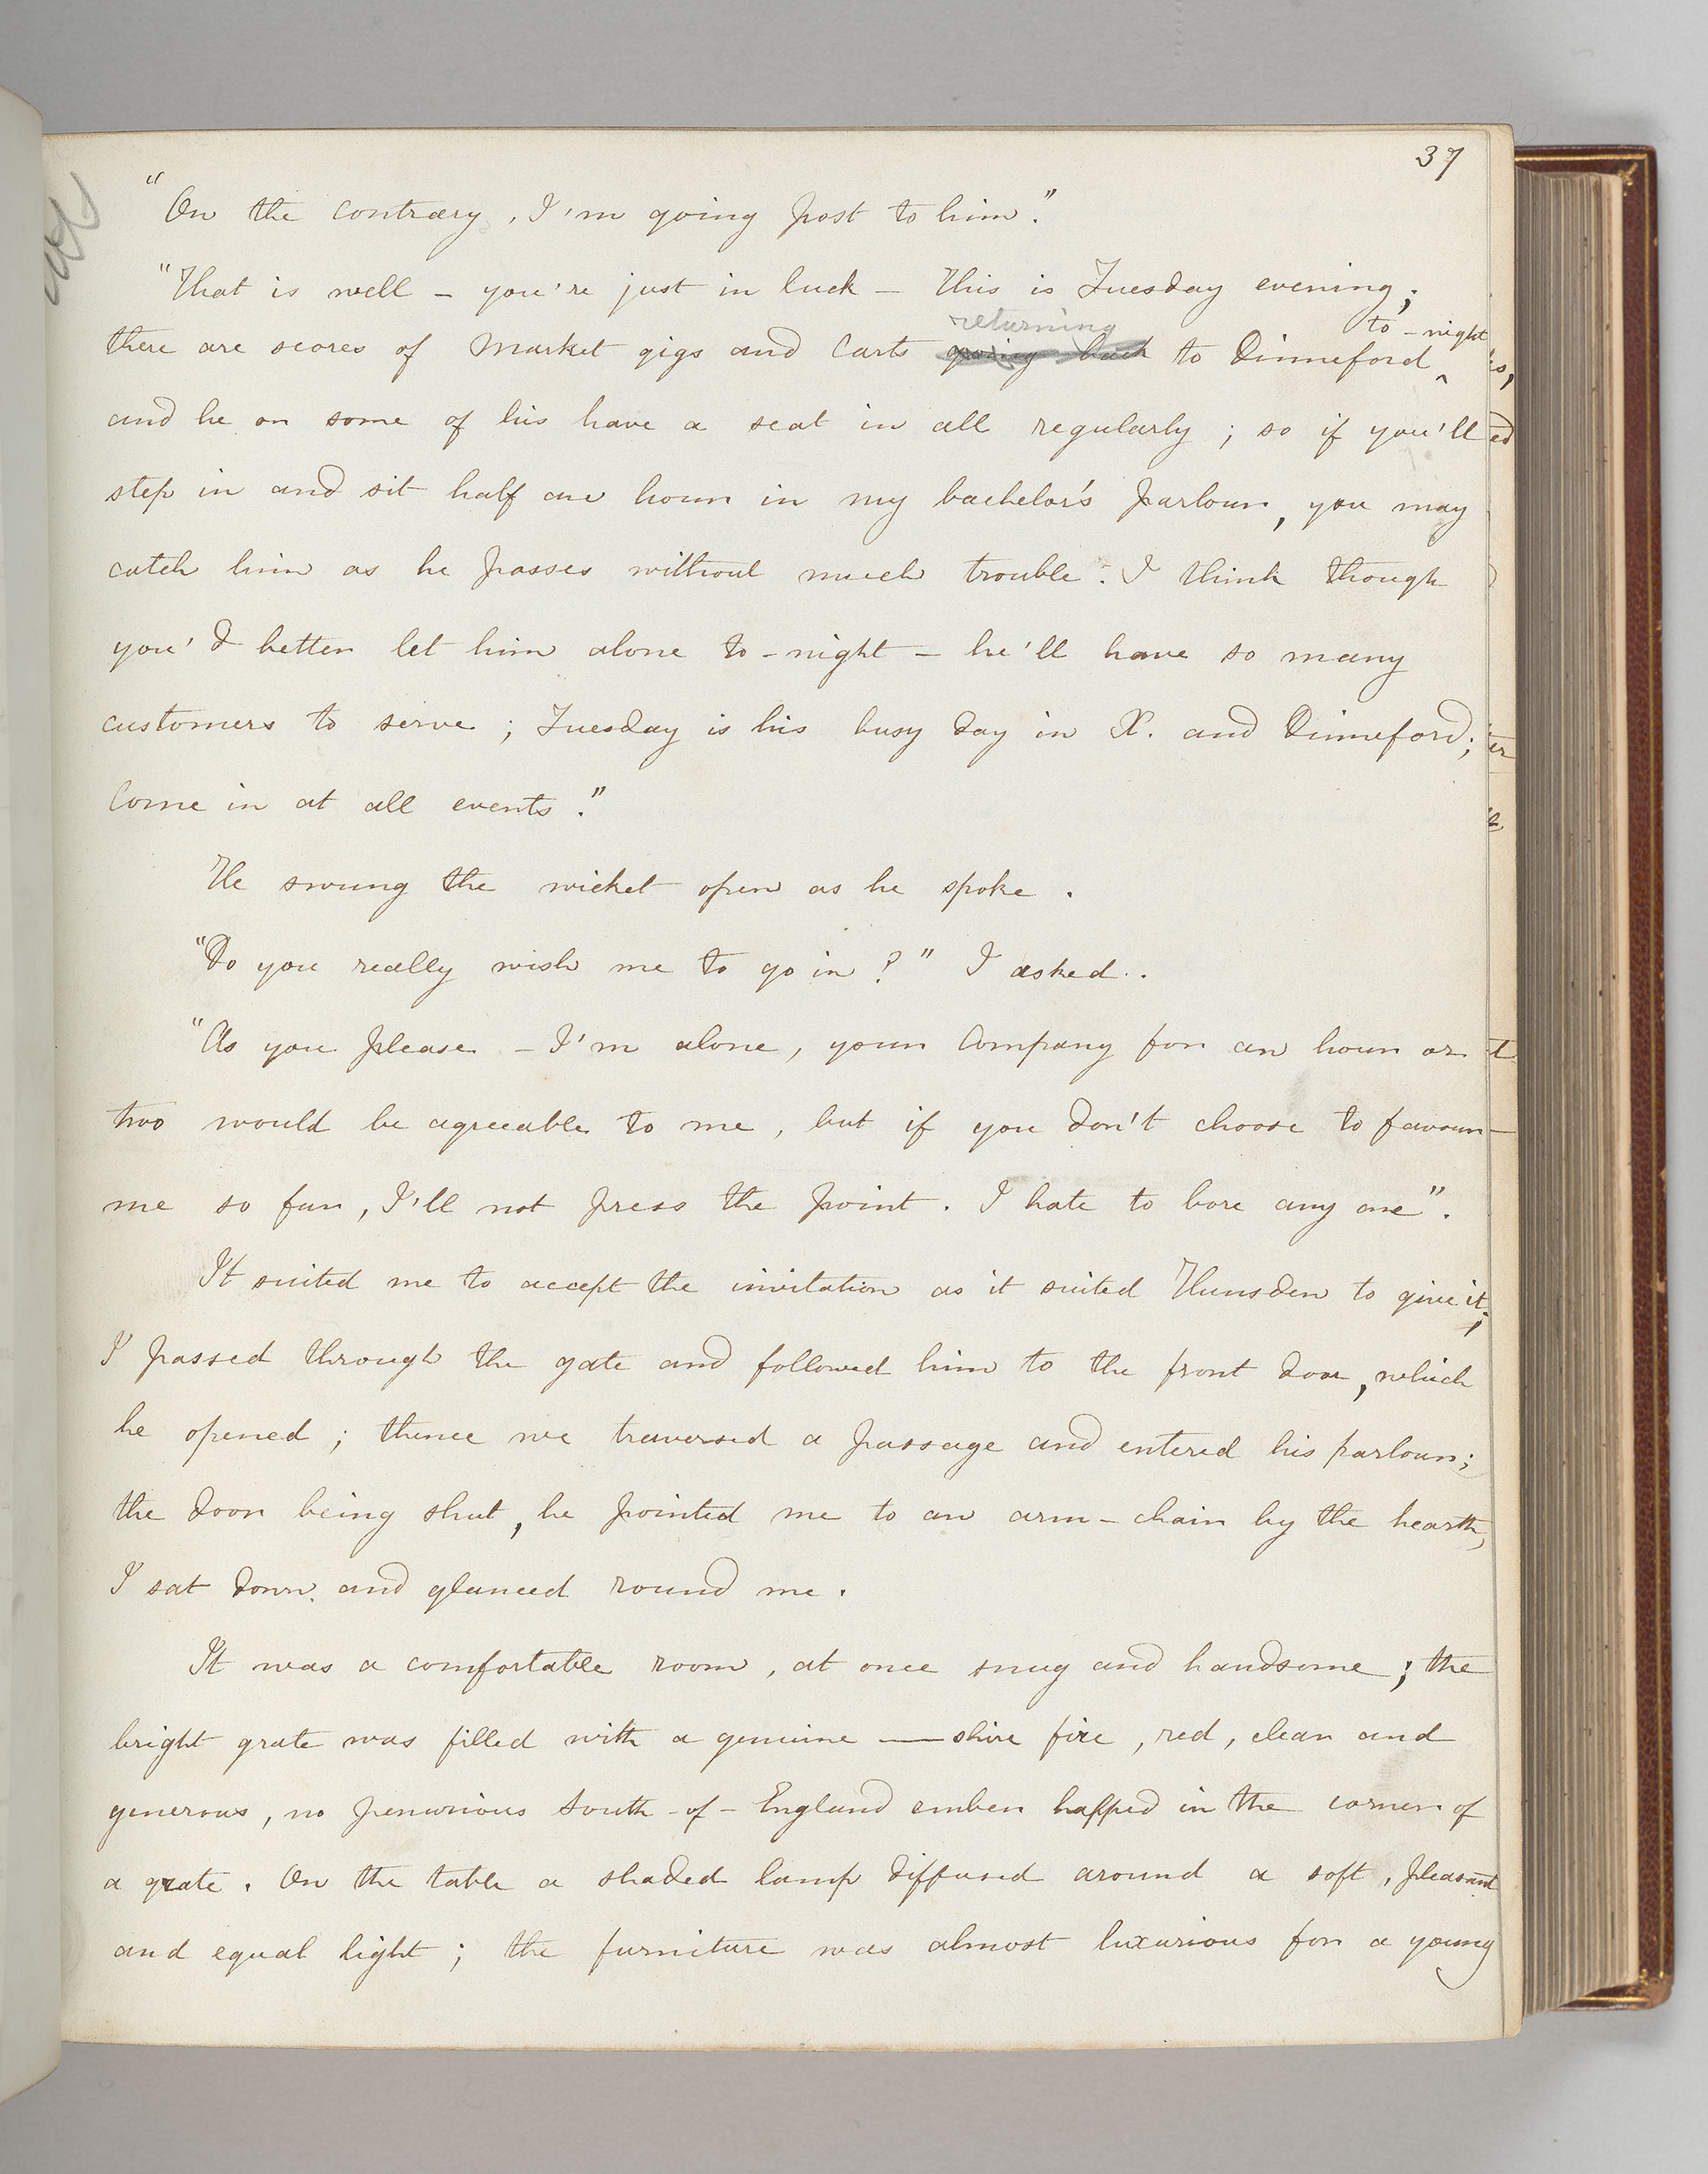 37
"On the contrary, I'm going post to him."
"That is well – you're just in luck – This is Tuesday evening;
returning to-night
there are scores of market gigs and carts going back to Dinneford
and he or some of his have a seat in all regularly; so if you'll
step in and sit half an hour in my bachelor's parlour, you may
catch him as he passes without much trouble. I think though
you'd better let him alone to-night – he'll have so many
customers to serve; Tuesday is his busy day in X. and Dinneford;
come in at all events."
He swung the wicket open as he spoke.
"Do you really wish me to go in?" I asked.
"As you please – I'm alone, your company for an hour or
two would be agreeable to me, but if you don't choose to favour
me so far, I'll not press the point. I hate to bore any one".
It suited me to accept the invitation as it suited Hunsden to give it;
I passed through the gate and followed him to the front door, which
he opened; thence we traversed a passage and entered his parlour;
the door being shut, he pointed me to an arm-chair by the hearth,
I sat down and glanced round me.
It was a comfortable room, at once snug and handsome; the
bright grate was filled with a genuine ——shire fire, red, clear and
generous, no penurious South-of-England ember happed in the corner of
a grate. On the table a shaded lamp diffused around a soft, pleasant
and equal light; the furniture was almost luxurious for a young